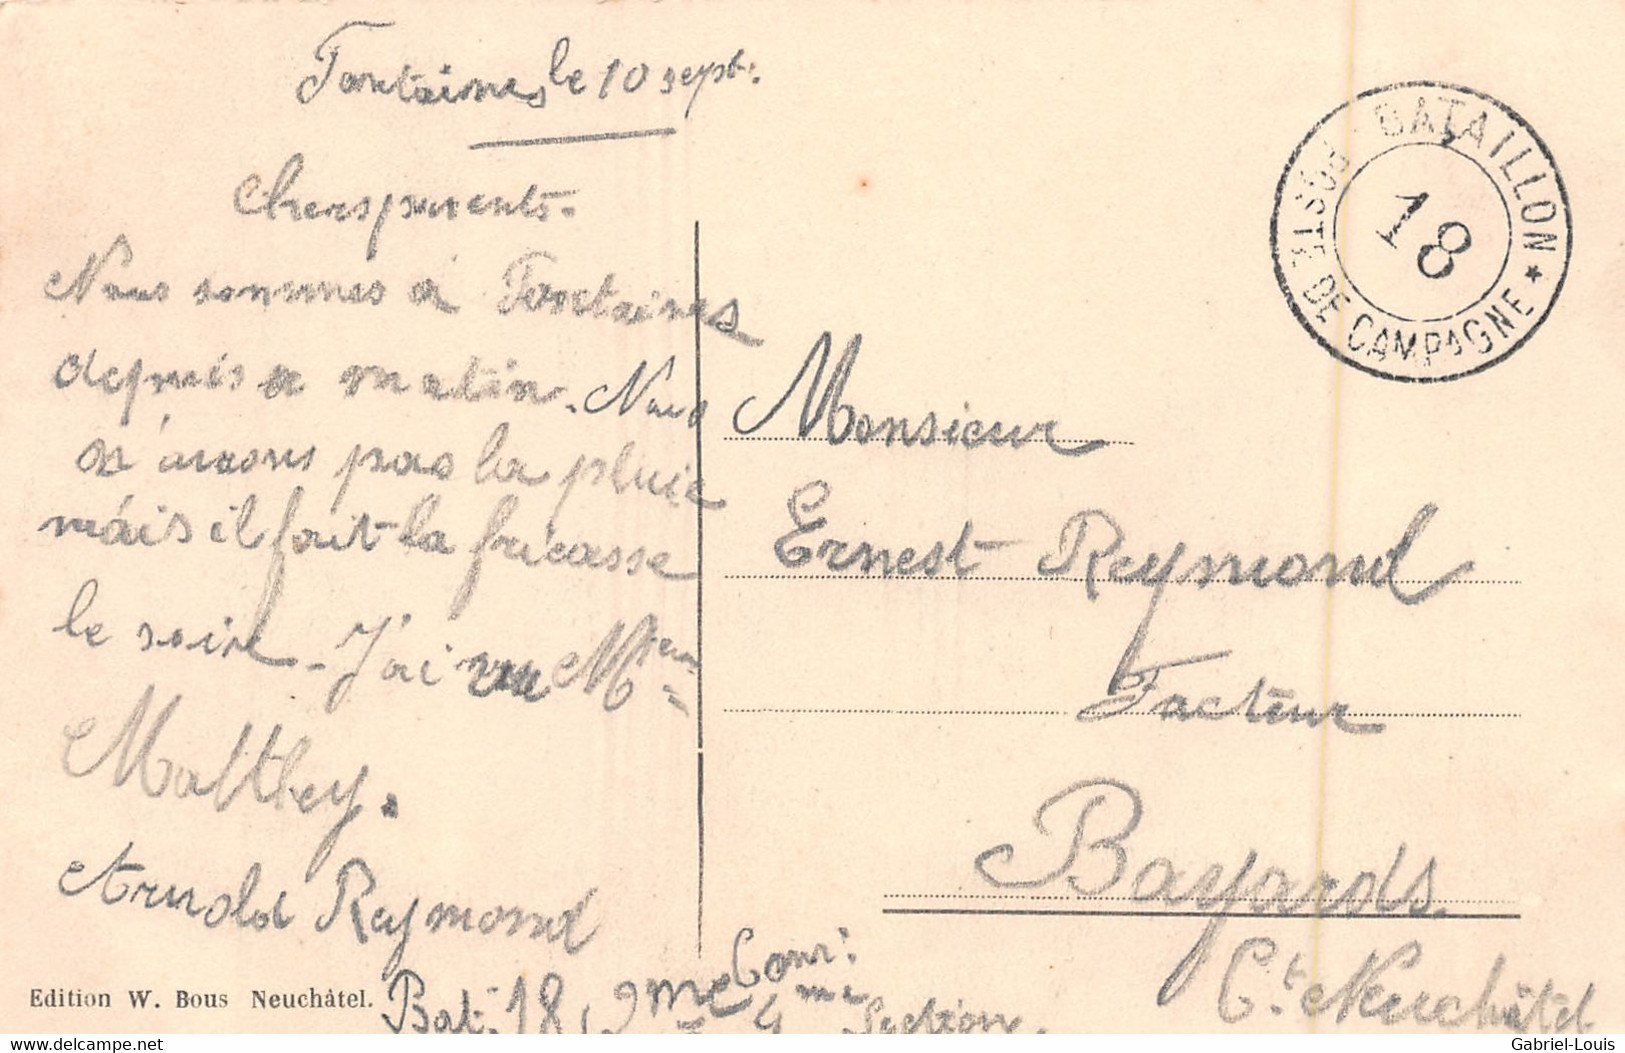 Fontaines le 10 sept.
Chers parents.
Nous sommes à Fontaines
depuis ce matin. Nous
n'avons pas la pluie
mais il fait la fricasse
le soir. J'ai vu M
Matthey.
Arnold Reymond
Bat. 18, 2me
4me Section.
Edition W. Bous Neuchâtel.
POSTE DE CAMPAGNE * BATAILLON
18
Monsieur
Ernest Reymond
Facteur
Bayards.
Ct. Neuchâtel
www.delcampe.net
Gabriel-Louis